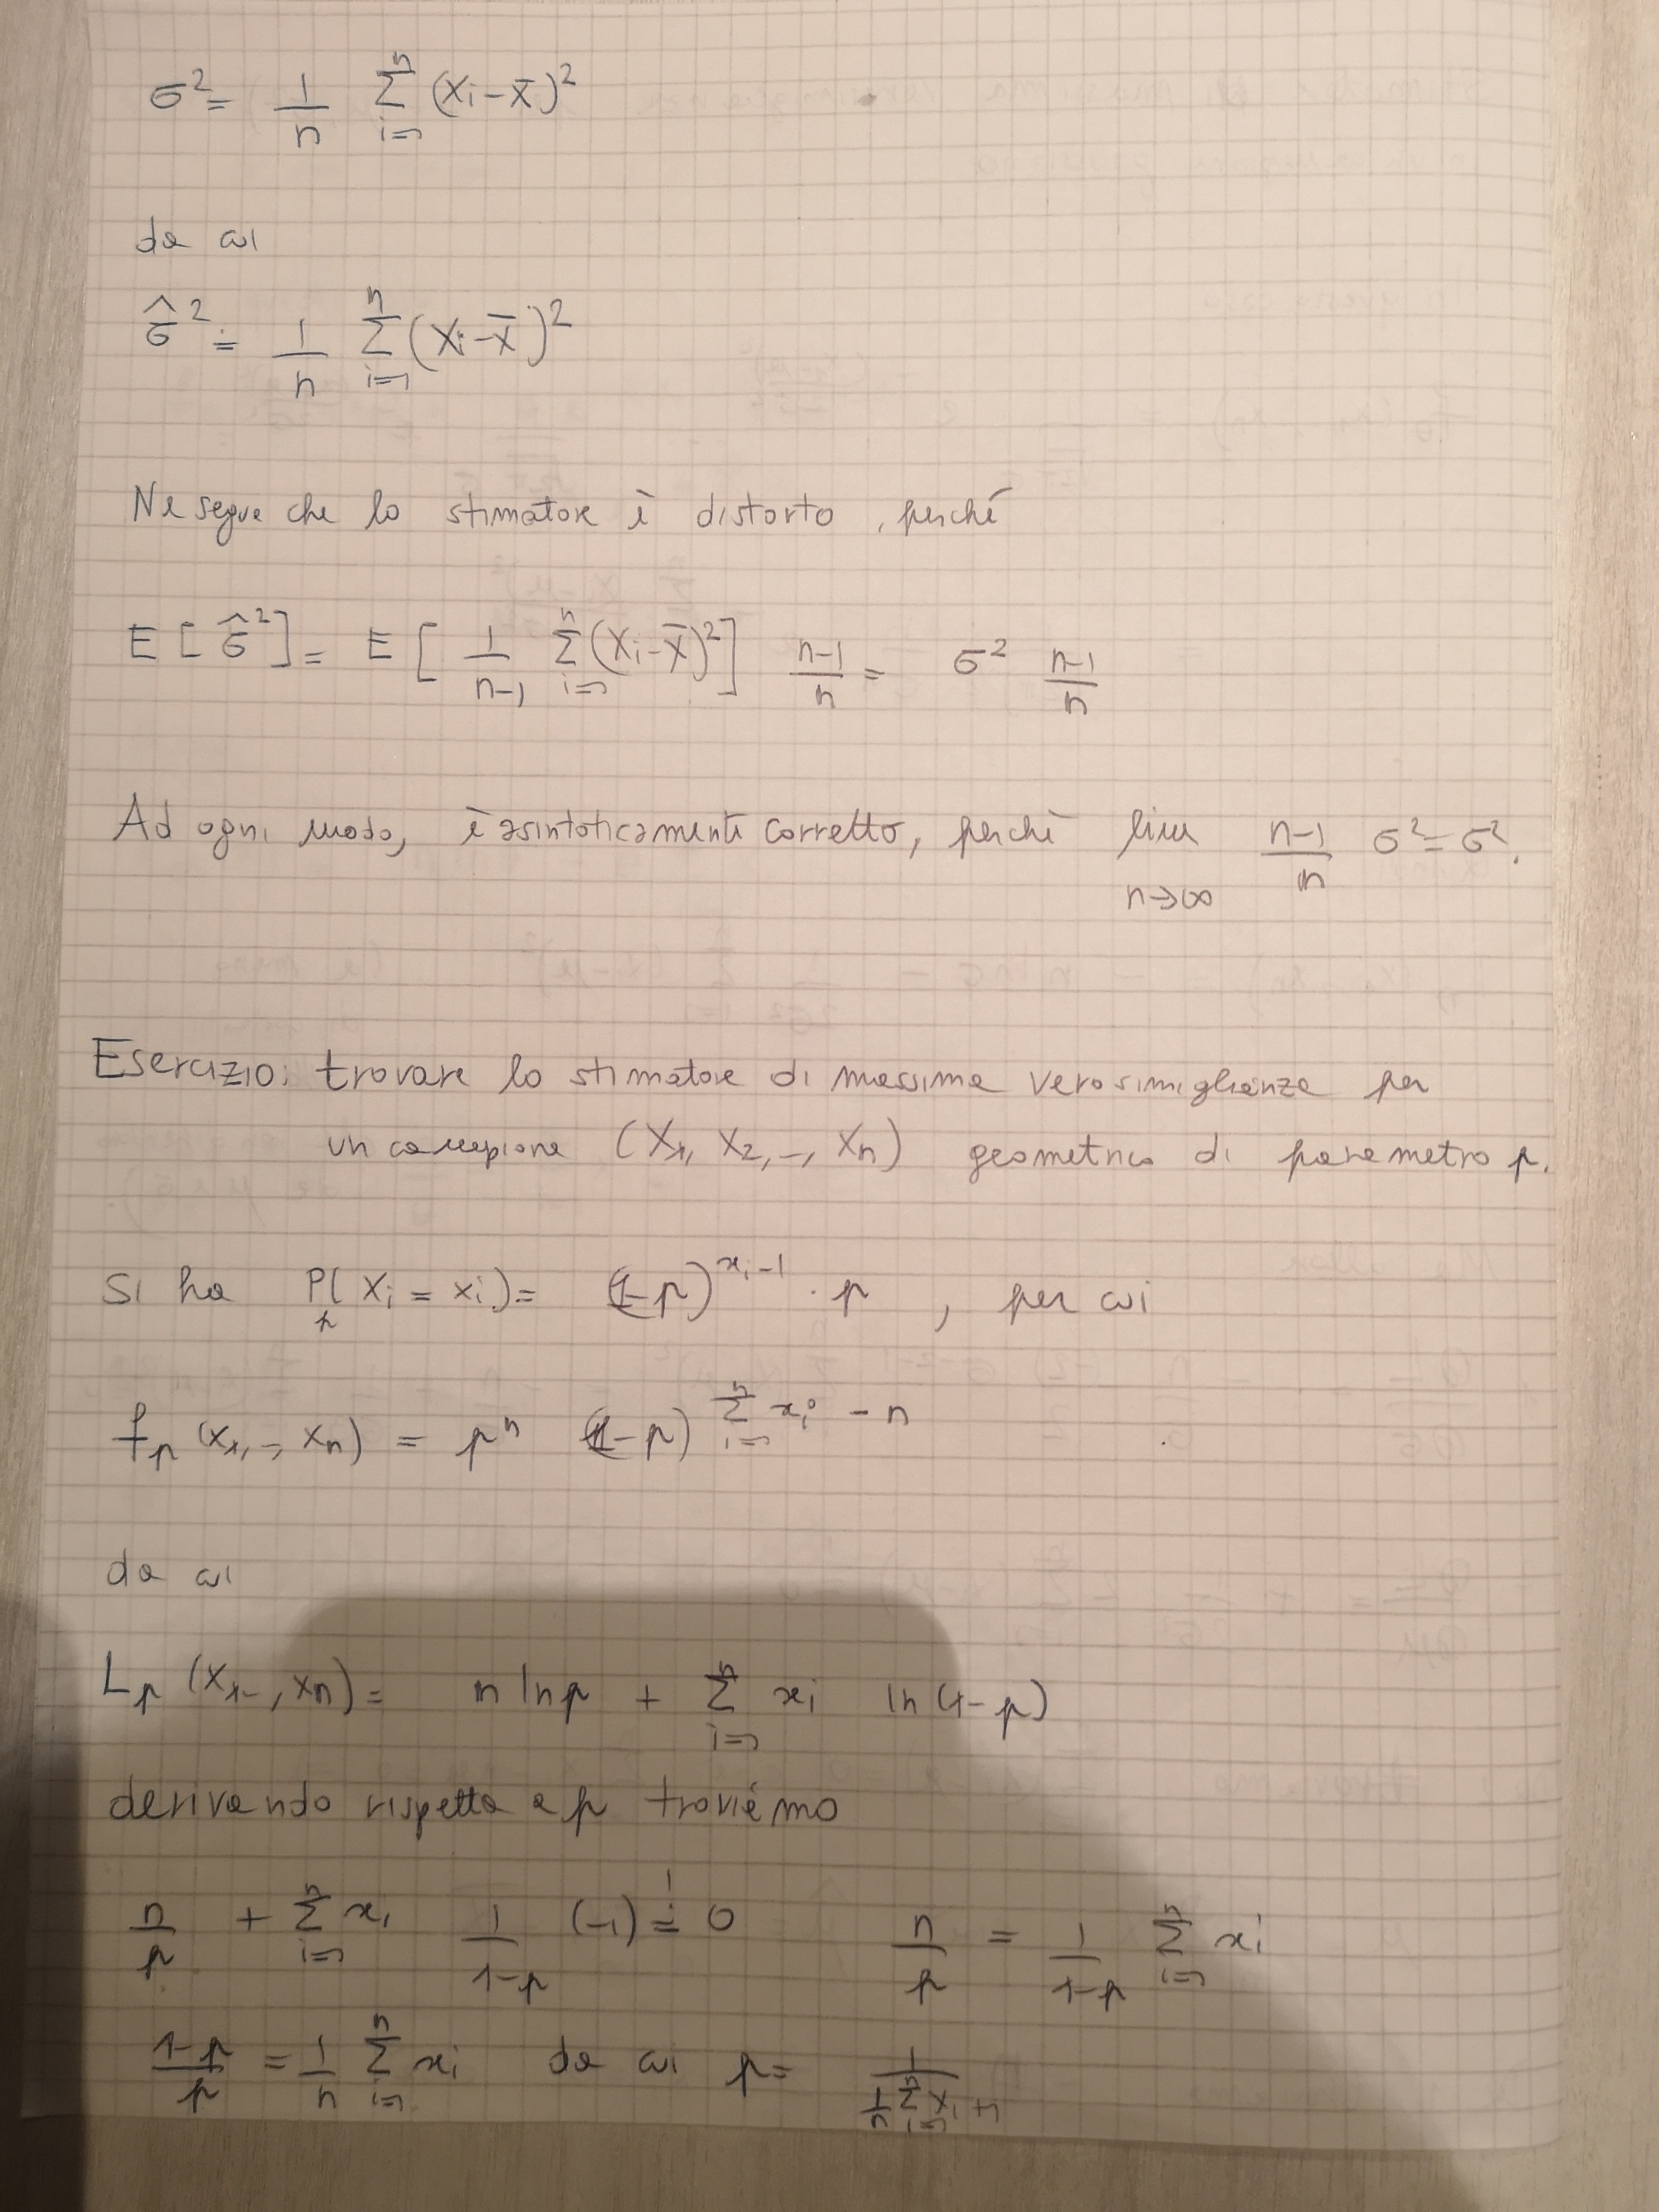 σ² = 1/n Σ_{i=1}^{n} (Xi - X̄)²
da cui
σ̂² = 1/n Σ_{i=1}^{n} (Xi - X̄)²
Ne segue che lo stimatore è distorto, perché
E[σ̂²] = E[1/(n-1) Σ_{i=1}^{n} (Xi - X̄)²] (n-1)/n = σ² (n-1)/n
Ad ogni modo, è asintoticamente corretto, perché lim_{n→∞} (n-1)/n σ² = σ².
Esercizio: trovare lo stimatore di massima verosimiglianza per
un campione (X1, X2, -, Xn) geometrico di parametro p.
Si ha P_p(Xi = xi) = (1-p)^{xi-1} · p, per cui
f_p(x1, -, xn) = p^n (1-p)^{Σ_{i=1}^{n} xi - n}
da cui
L_p(x1 -, xn) = n ln p + Σ_{i=1}^{n} xi ln(1-p)
derivando rispetto a p troviamo
n/p + Σ_{i=1}^{n} xi 1/(1-p) (-1) =! 0 n/p = 1/(1-p) Σ_{i=1}^{n} xi
(1-p)/p = 1/n Σ_{i=1}^{n} xi da cui p = 1/(1/n Σ_{i=1}^{n} Xi + 1)